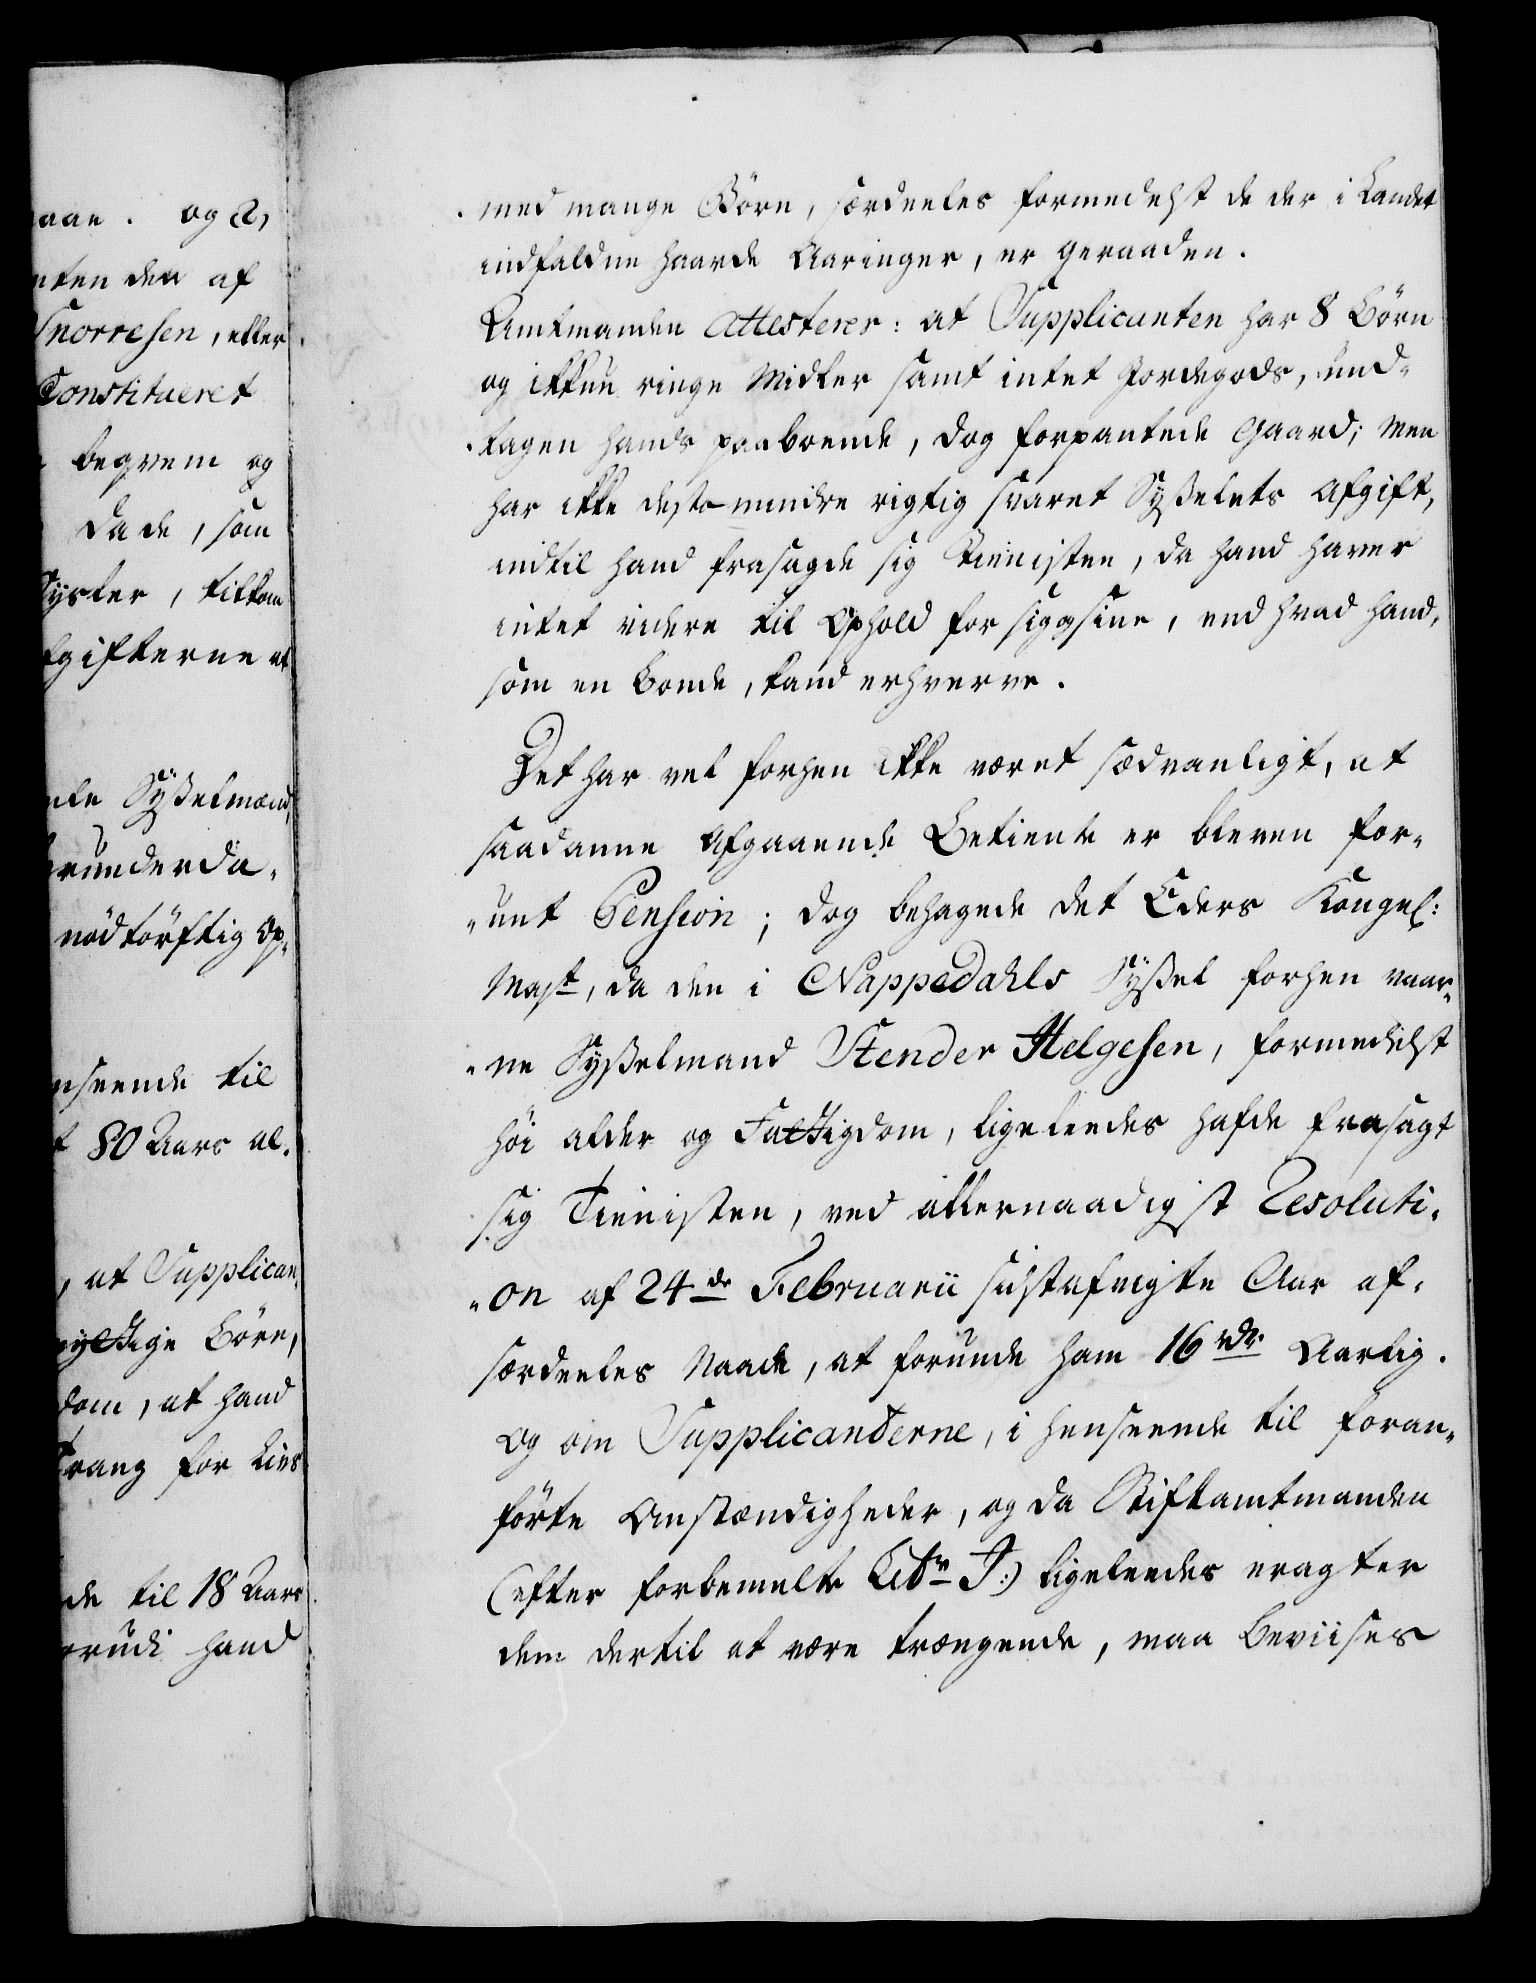 aan. og 2,
nten den af
Snorresen, eller
Constitueret
beqvem og
da de, som
Syster, tilkom
fgifterne at
nte Sysselmænd,
grunderda-
nödtörftig Op-
nseende til
t 80 Aars al-
, at Supplican-
yttige Börn,
dom, at hand
Trang for Livs
de til 18 Aars
hand
med mange Börn, særdeeles formedelst de der i Landet
indfaldne haarde Aaringer, er geraaden.
Amtmanden Attesterer: at Supplicanten har 8 Börn
og ikkun ringe Midler samt intet Jordegods, und-
tagen hands paaboende, dog forpantede Gaard; men
har ikke desto mindre rigtig svaret Sysselets Afgift,
indtil hand frasagde sig Tienisten, da hand haver
intet videre til Ophold for sig og sine, end hvad hand,
som en Bonde, kand erhverve.
Det har vel forhen ikke været sædvanligt, at
saadanne Afgaaende Betiente er bleven for-
-unt Pension; dog behagede det Eders Kongel:
Mayt, da den i Nappedahls Syssel forhen vaar-
-ne Sysselmand Stender Helgesen, formedelst
höi alder og Fattigdom, ligeleedes hafde frasagt
sig Tienisten, ved allernaadigst Resoluti-
-on af 24de Februarii sidstafvigte Aar af
særdeeles Naade, at forunde ham 16 rdr Aarlig.
Og om Supplicanterne, i henseende til foran-
förte Omstændigheder, og da Stiftamtmanden
(efter forbemelte Litr J:) ligeleedes eragter
dem dertil at være trængende, maa Beviises